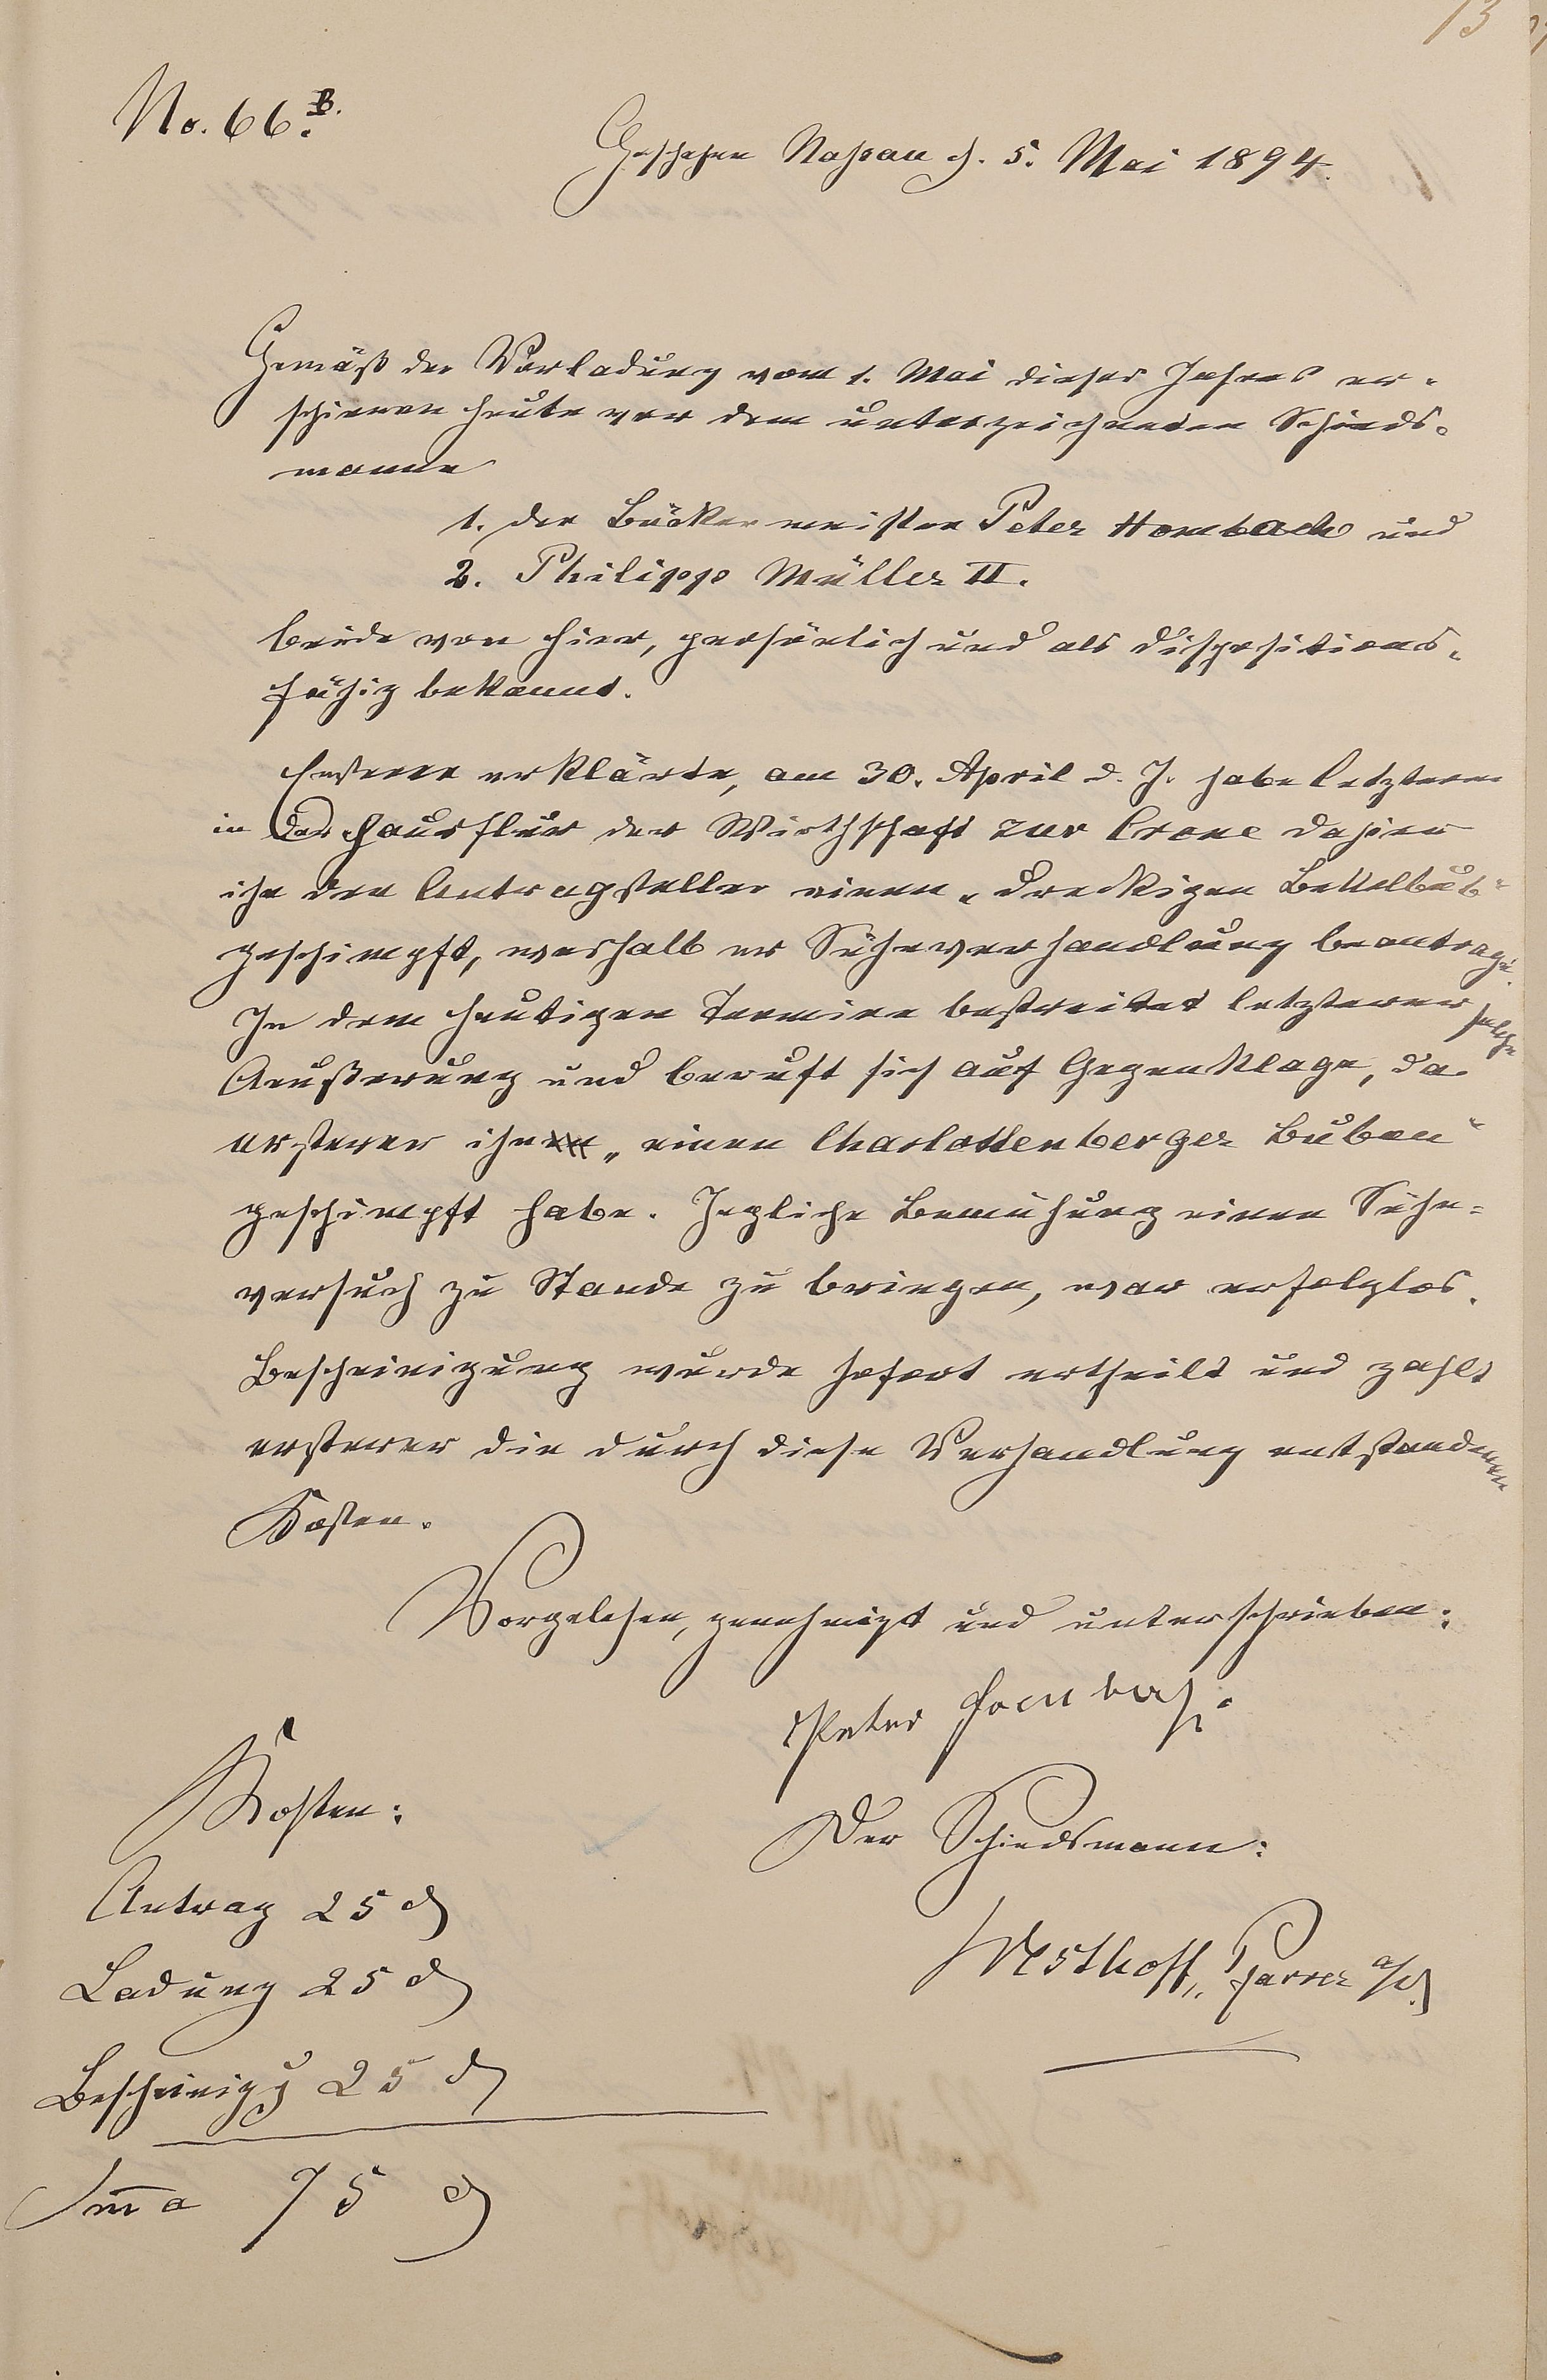 13
No. 66.B.
Geschehen Nassau d. 5. Mai 1894.
Gemäß der Vorladung vom 1. Mai dieses Jahres er-
schienen heute vor dem unterzeichneten Schieds-
manne
1. der Bäckermeister Peter Hombach und
2. Philipp Müller II.
beide von hier, persönlich und als dispositions-
fähig bekannt.
Ersterer erklärte, am 30. April d. J. habe letzterer
in der Hausflur der Wirthschaft zur Crone dahier
ihn den Antragsteller einen „dreckigen Bettelbub“
geschimpft, weshalb er Sühneverhandlung beantrage.
In dem heutigen Termine bestreitet letzterer solche
Aeußerung und beruft sich auf Gegenklage, da
ersterer ihn „einen Charlottenberger Buben“
geschimpft habe. Jegliche Bemühung einen Sühne-
versuch zu Stande zu bringen, war erfolglos.
Bescheinigung wurde sofort ertheilt und zahlt
ersterer die durch diese Verhandlung entstandenen
Kosten.
Vorgelesen, genehmigt und unterschrieben:
Peter Hombach.
Kosten:
Der Schiedsmann:
Antrag 25 ₰
Westhoff, Pfarrer a/D.
Ladung 25 ₰
Bescheinigg 25 ₰
Sma 75 ₰